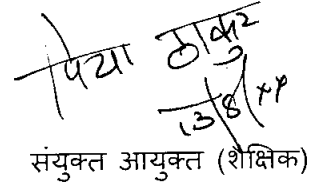 पिया ठाकुर
13/8/14
संयुक्त आयुक्त (शैक्षिक)